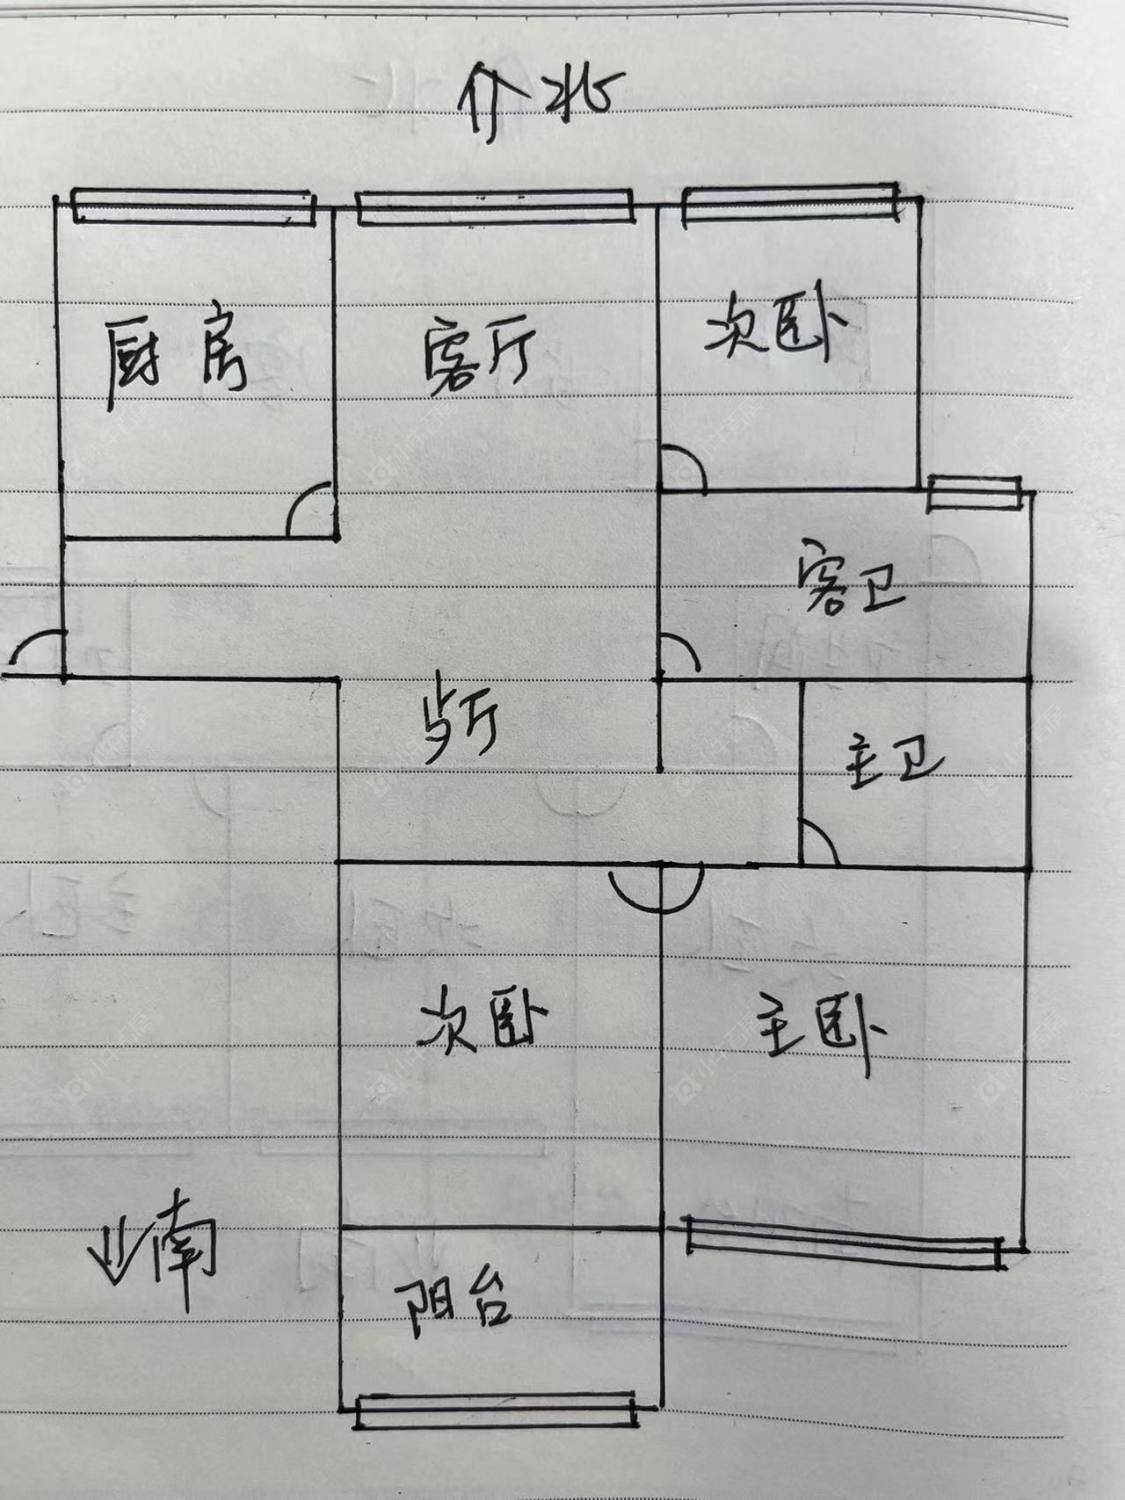 北
厨房 客厅 次卧
客卫
歺厅 主卫
次卧 主卧
南
阳台